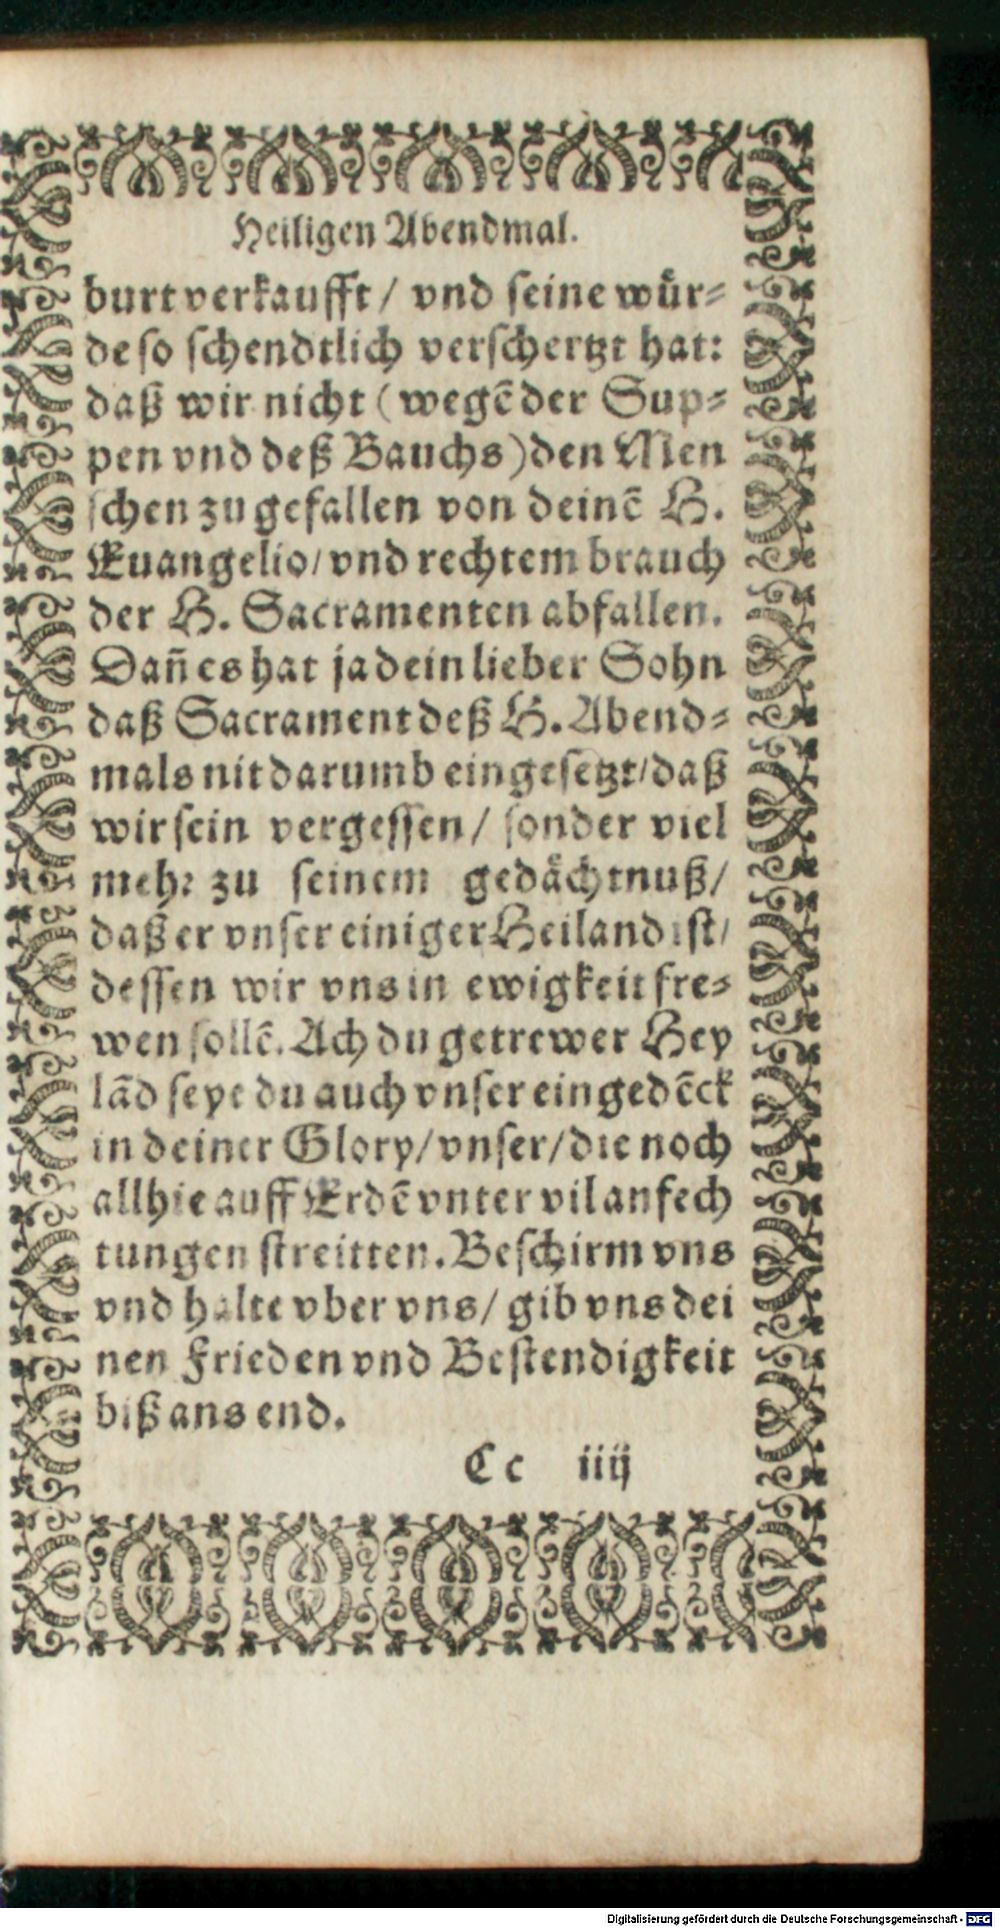 Heiligen Abendmal.
burt verkaufft / vnd seine wür⸗
de so schendtlich verschertzt hat:
daß wir nicht ( wegē der Sup⸗
pen vnd deß Bauchs ) den Men
schen zu gefallen von deinē H.
Euangelio / vnd rechtem brauch
der H. Sacramenten abfallen.
Dañ es hat ja dein lieber Sohn
daß Sacrament deß H. Abend⸗
mals nit darumb eingesetzt / daß
wir sein vergessen / sonder viel
mehr zu seinem gedächtnuß /
daß er vnser einiger Heiland ist /
dessen wir vns in ewigkeit fre⸗
wen sollē. Ach du getrewer Hey
lād seye du auch vnser eingedēck
in deiner Glory / vnser / die noch
allhie auff Erdē vnter vil anfech
tungen streitten. Beschirm vns
vnd halte vber vns / gib vns dei
nen Frieden vnd Bestendigkeit
biß ans end.
Cc iiij
Digitalisierung gefördert durch die Deutsche Forschungsgemeinschaft - DFG